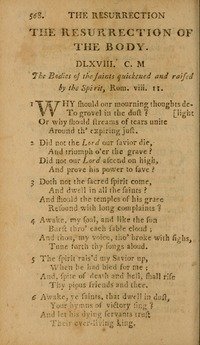 568. THE RESURRECTION
THE RESURRECTION OF
THE BODY.
DLXVIII. C. M
The Bodies of the saints quickened and raised
by the Spirit, Rom. viii. 11.
1 WHY should our mourning thoughts de-
To grovel in the dust? [light
Or why should streams of tears unite
Around th' expiring just.
2 Did not the Lord our savior die,
And triumph o'er the grave?
Did not our Lord ascend on high,
And prove his power to save?
3 Doth not the sacred spirit come,
And dwell in all the saints?
And should the temples of his grace
Resound with long complaints?
4 Awake, my soul, and like the sun
Burst thro' each sable cloud;
And thou, my voice, tho' broke with sighs,
Tune forth thy songs aloud.
5 The spirit rais'd my Savior up,
When he had bled for me;
And, spite of death and hell, shall rise
Thy pious friends and thee.
6 Awake, ye saints, that dwell in dust,
Your hymns of victory sing?
And let his dying servants trust
Their ever-living king.